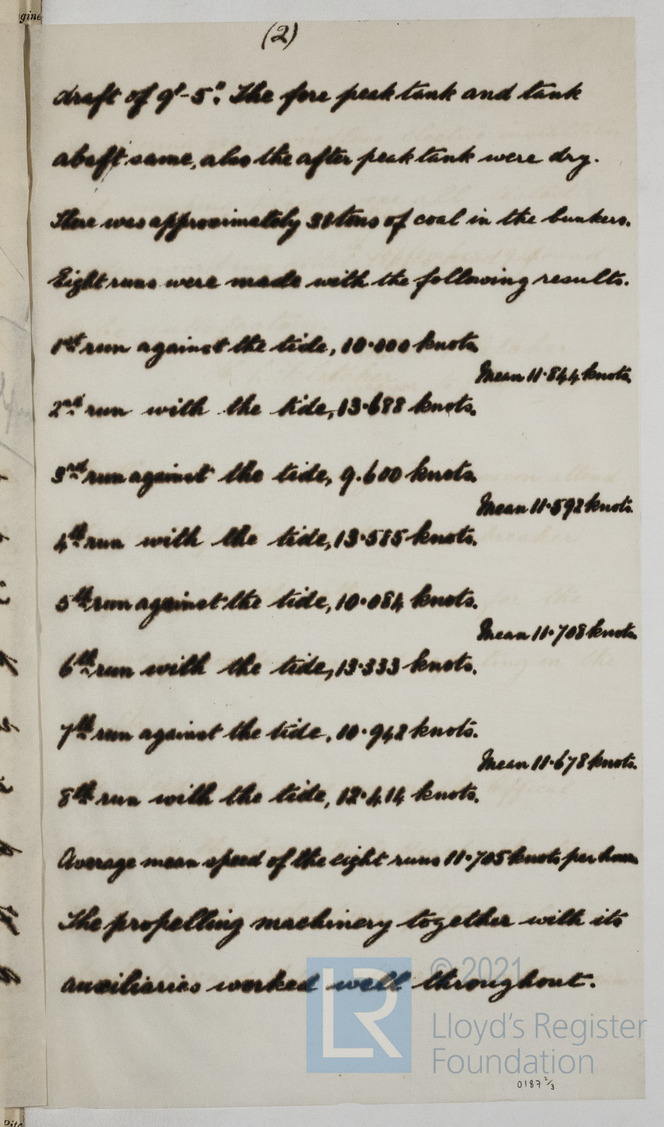 (2)
draft of 9'-5". The fore peak tank and tank
abaft same, also the after peak tank were dry.
There was approximately tons of coal in the bunkers.
Eight runs were made with the following results.
1st run against the tide, 10·000 knots
Mean 11·844 knots,
2nd run with the tide, 13·688 knots.
3rd run against the tide, 9·600 knots
Mean 11·592 knots.
4th run with the tide, 13·585 knots.
5th run against the tide, 10·084 knots.
Mean 11·708 knots
6th run with the tide, 13·333 knots.
7th run against the tide, 10·942 knots.
Mean 11·678 knots.
8th run with the tide, 12·414 knots.
Average mean speed of the eight runs 11·705 knots per hour
The propelling machinery together with its
auxiliaries worked well throughout.
© 2021
LR
Lloyd's Register
Foundation
0187 2/3